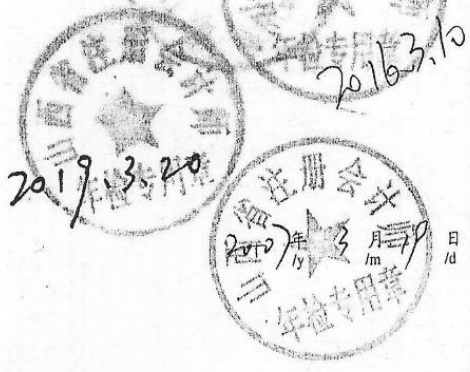 年检专用章
2016.3.10
山西省注册会计师
年检专用章
2019.3.20
山西省注册会计师
2007年3月29日
/y /m /d
年检专用章